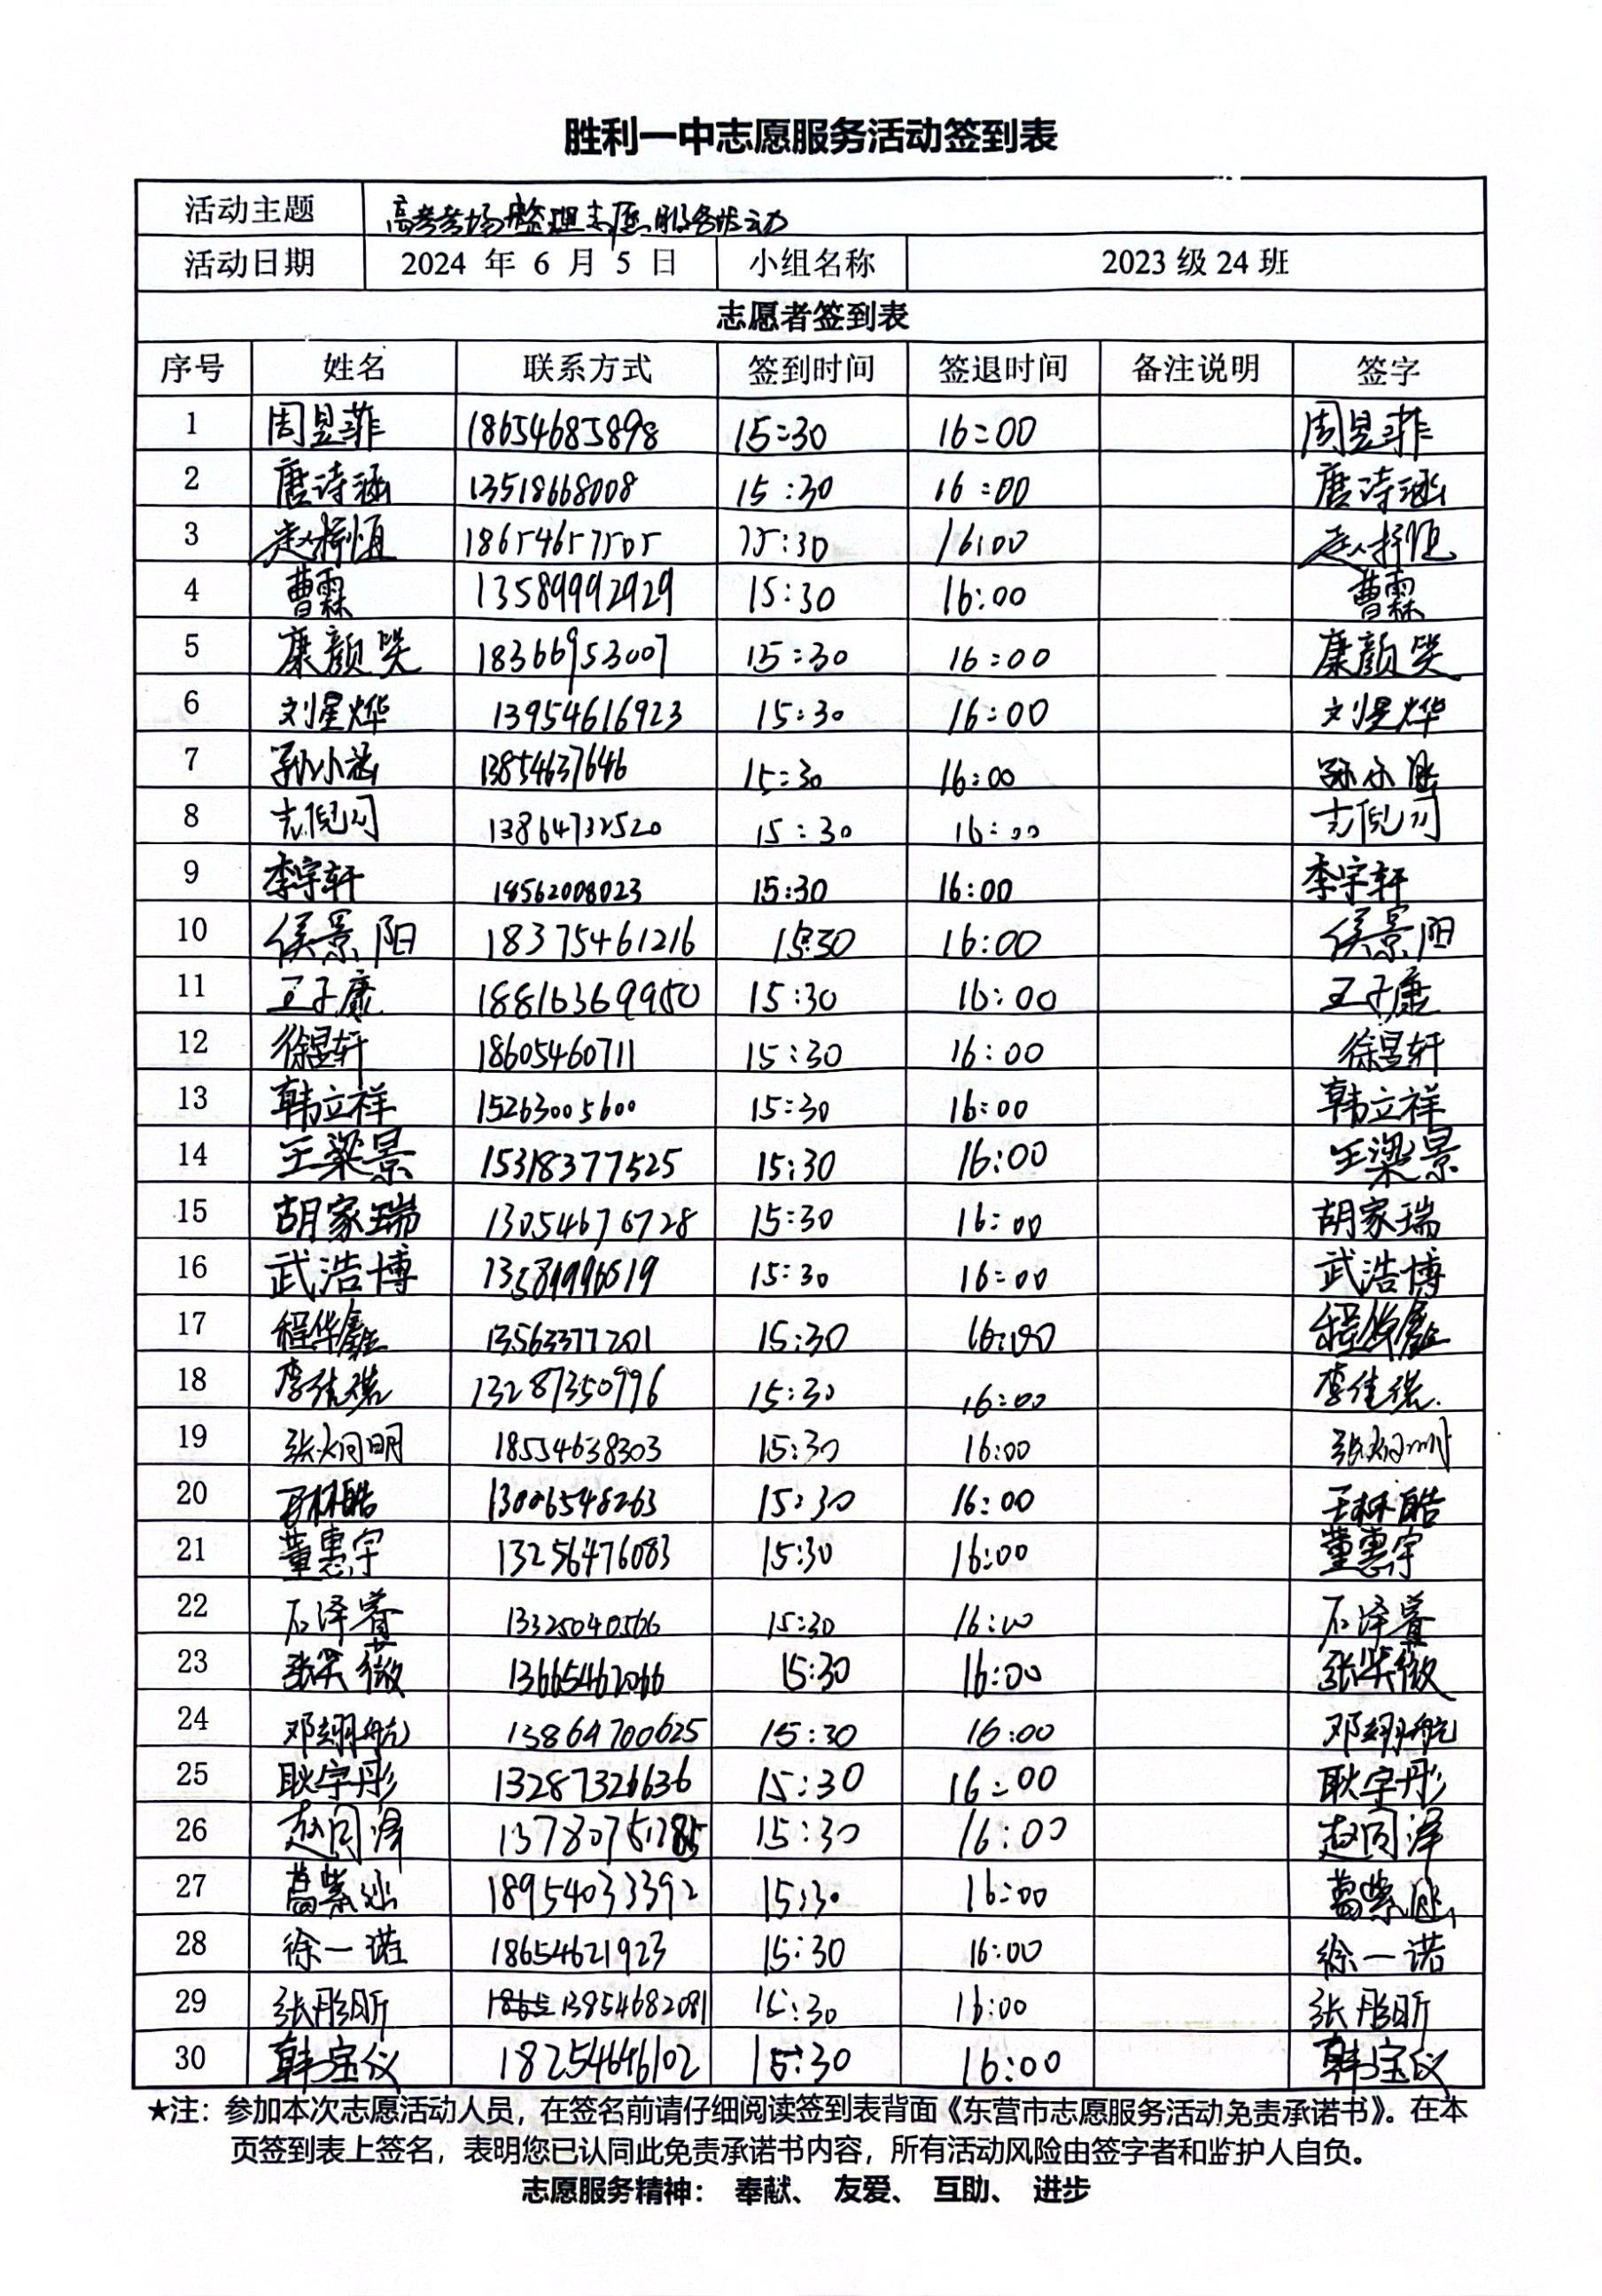 胜利一中志愿服务活动签到表
活动主题 高考考场整理志愿服务活动
活动日期 2024 年 6 月 5 日 小组名称 2023 级 24 班
志愿者签到表
序号 姓名 联系方式 签到时间 签退时间 备注说明 签字
1 周昱菲 18654685898 15:30 16:00 周昱菲
2 唐诗涵 13518668008 15:30 16:00 唐诗涵
3 18654657505 15:30 16:00
4 曹霖 13589992929 15:30 16:00 曹霖
5 康颜笑 18366953007 15:30 16:00 康颜笑
6 刘星烨 13954616923 15:30 16:00 刘星烨
7 孙小涵 13854637646 15:30 16:00 孙小涵
8 13864732520 15:30 16:00
9 李宇轩 18562008023 15:30 16:00 李宇轩
10 侯景阳 18375461216 15:30 16:00 侯景阳
11 王子康 18816369950 15:30 16:00 王子康
12 徐昱轩 18605460711 15:30 16:00 徐昱轩
13 韩立祥 15263005600 15:30 16:00 韩立祥
14 王梁景 15318377525 15:30 16:00 王梁景
15 胡家瑞 13054676728 15:30 16:00 胡家瑞
16 武浩博 15:30 16:00 武浩博
17 程华鑫 13563377201 15:30 16:00 程华鑫
18 李佳诺 13287350996 15:30 16:00 李佳诺
19 张炯明 18554638303 15:30 16:00 张炯明
20 王林皓 15:30 16:00 王林皓
21 董惠宇 13256476083 15:30 16:00 董惠宇
22 石泽睿 13325040566 15:30 16:00 石泽睿
23 张笑薇 13665462066 15:30 16:00 张笑薇
24 邓翊航 13864700625 15:30 16:00 邓翊航
25 耿宇彤 13287326636 15:30 16:00 耿宇彤
26 赵同泽 15:30 16:00 赵同泽
27 葛紫涵 18954033392 15:30 16:00 葛紫涵
28 徐一诺 18654621923 15:30 16:00 徐一诺
29 张彤昕 13954682081 15:30 16:00 张彤昕
30 韩宝仪 18254646102 15:30 16:00 韩宝仪
★注：参加本次志愿活动人员，在签名前请仔细阅读签到表背面《东营市志愿服务活动免责承诺书》。在本
页签到表上签名，表明您已认同此免责承诺书内容，所有活动风险由签字者和监护人自负。
志愿服务精神： 奉献、 友爱、 互助、 进步